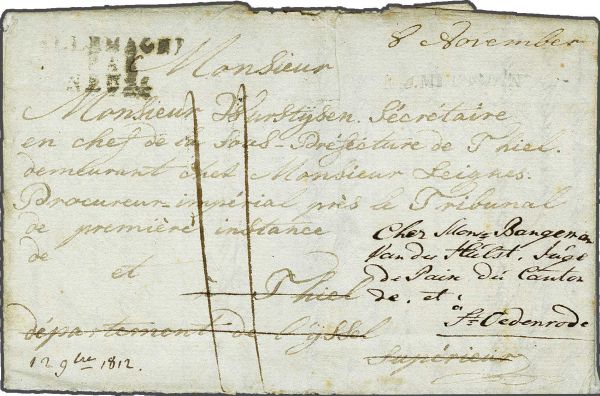 8 November
ALLEMAGNE
PAR
Monsieur
Monsieur Wurstysen. Sécrétaire
en chef de la Sous-Préfecture de Thiel.
demeurant chet Monsieur Leignes.
Procureur-impérial près le Tribunal
de première instance
de
et à Thiel
département de l'yssel
Supérieur
Cher Monr Bangeman
Van der Hülst, Juge
de Paix du Canton
de, et à
St Oedenrode
12 9bre 1812.